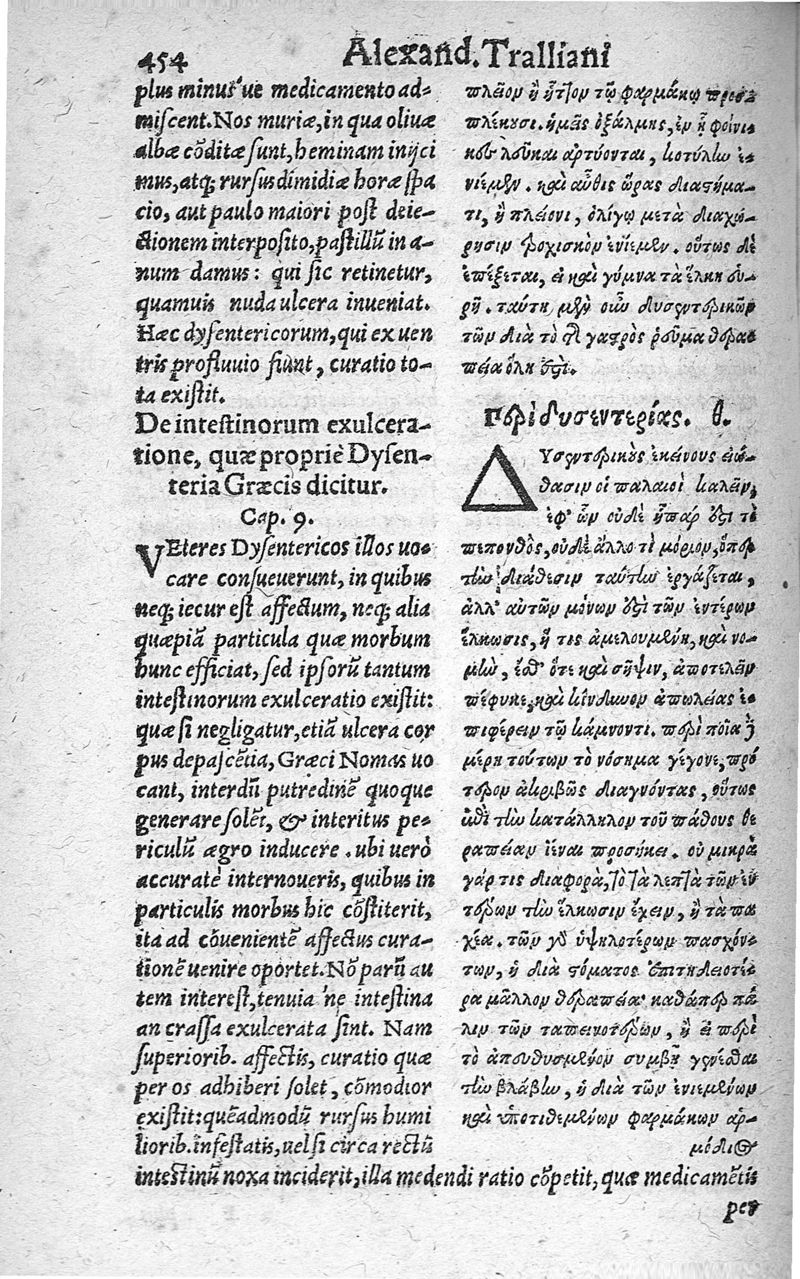 454 Alexand. Tralliani
plus minus'ue medicamento ad=
miscent. Nos muriæ, in qua oliuæ
albæ cōditæ sunt, heminam inijci
mus, atq; rursus dimidiæ horæ spa
cio, aut paulo maiori post deie-
ctionem interposito, pastillū in a-
num damus: qui sic retinetur,
quamuis nuda ulcera inueniat.
Hæc dysentericorum, qui ex uen
tris profluuio fiunt, curatio to-
ta existit.
De intestinorum exulcera-
tione, quæ propriè Dysen-
teria Græcis dicitur.
Cap. 9.
VEteres Dysentericos illos uo=
care consueuerunt, in quibus
neq; iecur est affectum, neq; alia
quæpiā particula quæ morbum
hunc efficiat, sed ipsorū tantum
intestinorum exulceratio existit:
quæ si negligatur, etiā ulcera cor
pus depascētia, Græci Nomas uo
cant, interdū putredinē quoque
generare solēt, & interitus pe=
riculū ægro inducere. ubi uerò
accuratè internoueris, quibus in
particulis morbus hic cōstiterit,
ita ad cōuenientē affectus cura-
tionē uenire oportet. Nō parū au
tem interest, tenuia 'ne intestina
an crassa exulcerata sint. Nam
superiorib. affectis, curatio quæ
per os adhiberi solet, cōmodior
existit: quēadmodū rursus humi
liorib. infestatis, uel si circa rectū
intestinū noxa inciderit, illa medendi ratio cōpetit, quæ medicamētis
per
πλεῖον ἢ ἧττον τῷ φαρμάκῳ προσ=
πλέκουσι. ἡμεῖς ὀξάλμης, ἐν ᾗ φοίνι=
κες λευκαὶ ἀρτύονται, κοτύλην ἐ=
νίεμεν. καὶ αὖθις ὥρας διαστήμα-
τι, ἢ πλείονι, ὀλίγῳ μετὰ διαχώ-
ρησιν τροχισκὸν ἐνίεμεν. οὕτως δὲ
ἐπέξεται, εἰ καὶ γυμνὰ τὰ ἕλκη εὕ-
ρῃ. ταύτη μὲν οὖν δυσεντερικῶν
τῶν διὰ τὸ τῆς γαστρὸς ῥεῦμα θερα=
πεία ὅλη ἐστί.
Περὶ δυσεντερίας. θ.
ΔΥσεντερικοὺς ἐκείνους εἰώ-
θασιν οἱ παλαιοὶ καλεῖν,
ἐφ' ὧν οὐδὲ ἧπάρ ἐστι τὸ
πεπονθὸς, οὐδὲ ἄλλο τὶ μόριον, ὅπερ
τὴν διάθεσιν ταύτην ἐργάζεται,
ἀλλ' αὐτῶν μόνων ἐστὶ τῶν ἐντέρων
ἕλκωσις, ἥ τις ἀμελουμένη, καὶ νο-
μὴν, ἔσθ' ὅτε καὶ σῆψιν, ἀποτελεῖν
πέφυκε, καὶ κίνδυνον ἀπωλείας ἐ=
πιφέρειν τῷ κάμνοντι. περὶ ποῖα δὲ
μέρη τούτων τὸ νόσημα γέγονε, πρό
τερον ἀκριβῶς διαγνόντας, οὕτως
ἐπὶ τὴν κατάλληλον τοῦ πάθους θε
ραπείαν ἰέναι προσήκει. οὐ μικρὰ
γάρ τις διαφορὰ, τὸ τὰ λεπτὰ τῶν ἐν
τέρων τὴν ἕλκωσιν ἔχειν, ἢ τὰ πα
χέα. τῶν γὰρ ὑψηλοτέρων πασχόν=
των, ἡ διὰ στόματος ἐπιτηδειοτέ=
ρα μᾶλλον θεραπεία· καθάπερ πά
λιν τῶν ταπεινοτέρων, ἢ εἰ περὶ
τὸ ἀπευθυσμένον συμβῇ γενέσθαι
τὴν βλάβην, ἡ διὰ τῶν ἐνιεμένων
καὶ ὑποτιθεμένων φαρμάκων ἁρ-
μόδιος